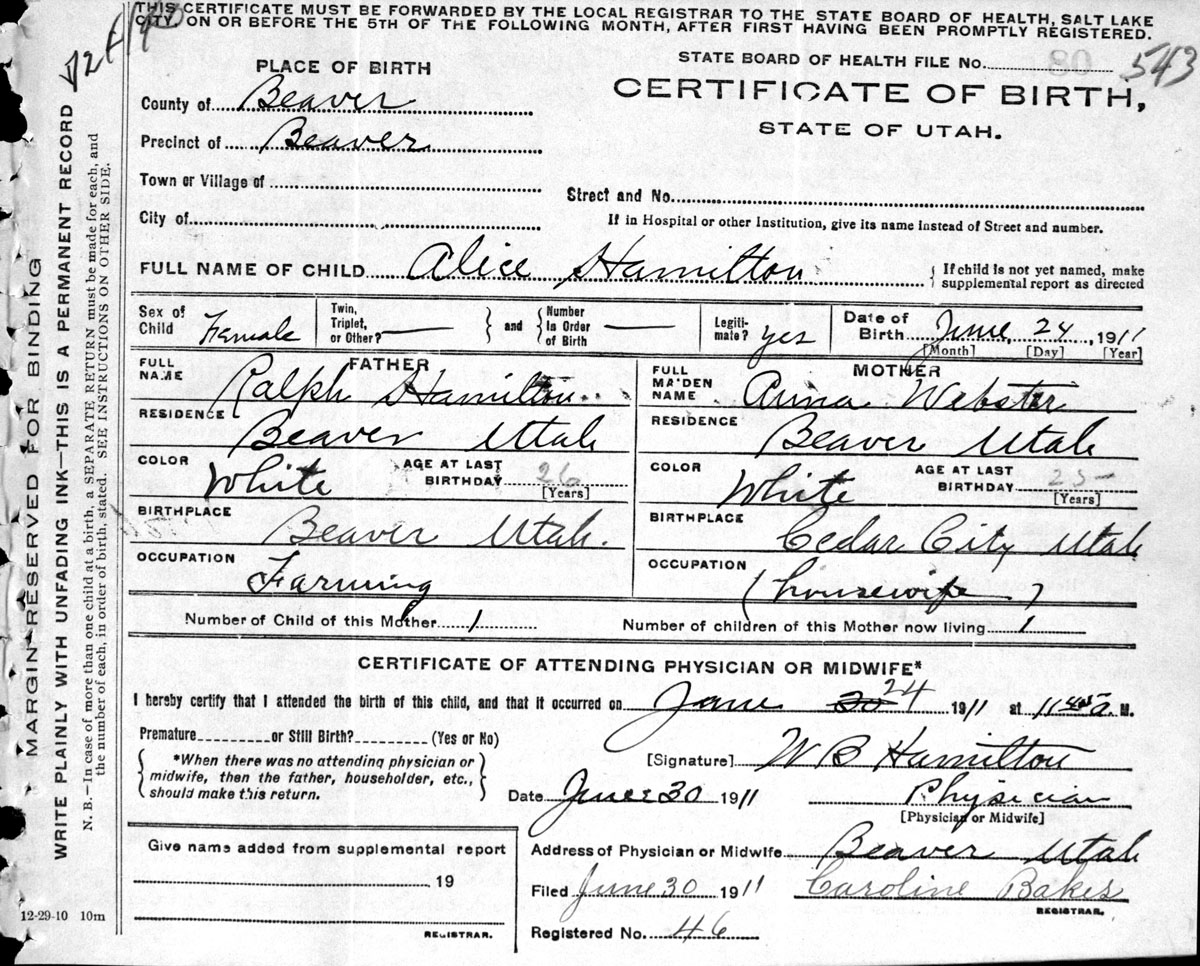 THIS CERTIFICATE MUST BE FORWARDED BY THE LOCAL REGISTRAR TO THE STATE BOARD OF HEALTH, SALT LAKE
CITY, ON OR BEFORE THE 5TH OF THE FOLLOWING MONTH, AFTER FIRST HAVING BEEN PROMPTLY REGISTERED.
STATE BOARD OF HEALTH FILE No. 80 543
PLACE OF BIRTH
CERTIFICATE OF BIRTH,
STATE OF UTAH.
County of Beaver
Precinct of Beaver
Town or Village of
Street and No.
City of
If in Hospital or other Institution, give its name instead of Street and number.
FULL NAME OF CHILD Alice Hamilton
{ If child is not yet named, make
supplemental report as directed
Sex of Child Female
Twin, Triplet, or Other? —
} and {
Number In Order of Birth —
Legiti-mate? yes
Date of Birth June 24, 1911
[Month] [Day] [Year]
FATHER
FULL NAME Ralph Hamilton
RESIDENCE Beaver Utah
COLOR White
AGE AT LAST BIRTHDAY 26
[Years]
BIRTHPLACE Beaver Utah.
OCCUPATION Farming
MOTHER
FULL MAIDEN NAME Anna Webster
RESIDENCE Beaver Utah
COLOR White
AGE AT LAST BIRTHDAY 25
[Years]
BIRTHPLACE Cedar City Utah
OCCUPATION (housewife)
Number of Child of this Mother 1
Number of children of this Mother now living 1
CERTIFICATE OF ATTENDING PHYSICIAN OR MIDWIFE*
I hereby certify that I attended the birth of this child, and that it occurred on June 24 1911 at 11 45 a. M.
Premature or Still Birth? (Yes or No)
{ *When there was no attending physician or
midwife, then the father, householder, etc.,
should make this return. }
[Signature] W B Hamilton
Date June 30 1911
Physician
[Physician or Midwife]
Give name added from supplemental report
19
REGISTRAR.
Address of Physician or Midwife Beaver Utah
Filed June 30 1911 Caroline Baker
REGISTRAR.
Registered No. 46
12-29-10 10m
MARGIN RESERVED FOR BINDING
WRITE PLAINLY WITH UNFADING INK—THIS IS A PERMANENT RECORD
N. B.—In case of more than one child at a birth, a SEPARATE RETURN must be made for each, and
the number of each, in order of birth, stated. SEE INSTRUCTIONS ON OTHER SIDE.